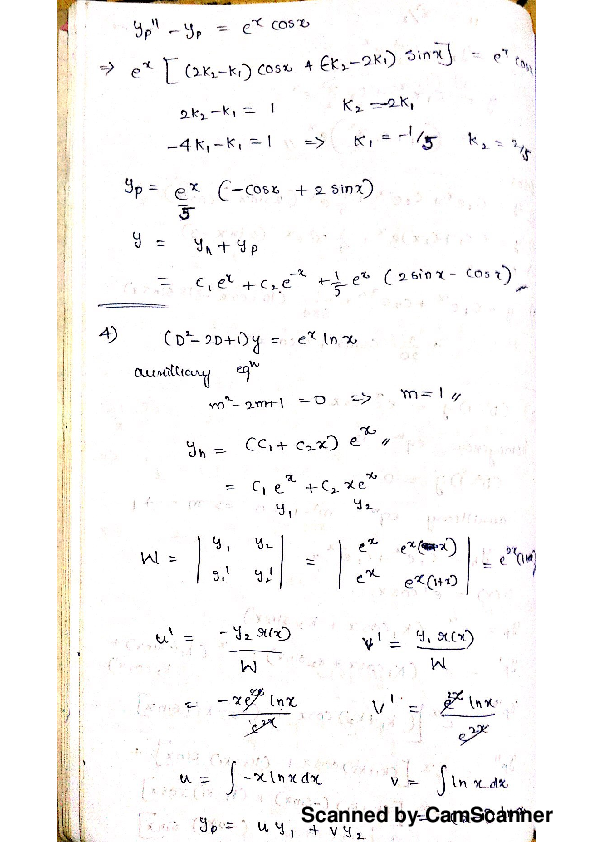 yp'' - yp = e^x cosx
⇒ e^x [ (2K₂-K₁) cosx + (-K₂-2K₁) sinx ] = e^x cosx
2K₂-K₁ = 1 K₂ = -2K₁
-4K₁-K₁ = 1 ⇒ K₁ = -1/5 K₂ = 2/5
yp = e^x/5 (-cosx + 2 sinx)
y = yh + yp
= C₁e^x + C₂e^-x + 1/5 e^x (2sinx - cosx)
4) (D²-2D+1)y = e^x ln x
auxilliary eqⁿ
m²-2m+1 = 0 ⇒ m=1 //
yh = (C₁ + C₂x) e^x //
= C₁ e^x + C₂ xe^x
y₁ y₂
W = | y₁ y₂ | = | e^x e^x(x) | = e^2x
| y₁' y₂' | | e^x e^x(1+x) |
u' = -y₂ r(x) / W v' = y₁ r(x) / W
= -xe^2x lnx / e^2x v' = e^2x lnx / e^2x
u = ∫ -x lnx dx v = ∫ ln x dx
yp = u y₁ + v y₂
Scanned by CamScanner